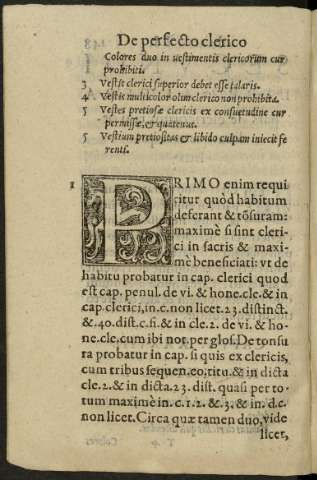 De perfecto clerico
Colores duo in uestimentis clericorum cur
prohibiti.
3 Vestis clerici superior debet esse talaris.
4 Vestis multicolor olim clerico non prohibita.
5 Vestes pretiosæ clericis ex consuetudine cur
permissæ, & quatenus.
5 Vestium pretiositas & libido culpam iniecit fe
renti.
1 PRIMO enim requi
ritur quòd habitum
deferant & tõsuram:
maximè si sint cleri-
ci in sacris & maxi-
mè beneficiati: vt de
habitu probatur in cap. clerici quod
est cap. penul. de vi. & hone. cle. & in
cap. clerici, in. c. non licet. 23. distinct.
& .40. dist. c. fi. & in cle. 2. de vi. & ho-
ne. cle. cum ibi not. per glos. De tonsu
ra probatur in cap. si quis ex clericis,
cum tribus sequen. eo. titu. & in dicta
cle. 2. & in dicta. 23. dist. quasi per to-
tum maximè in. c. 1. 2. & 3. & in. d. c.
non licet. Circa quæ tamen duo, vide
licet,